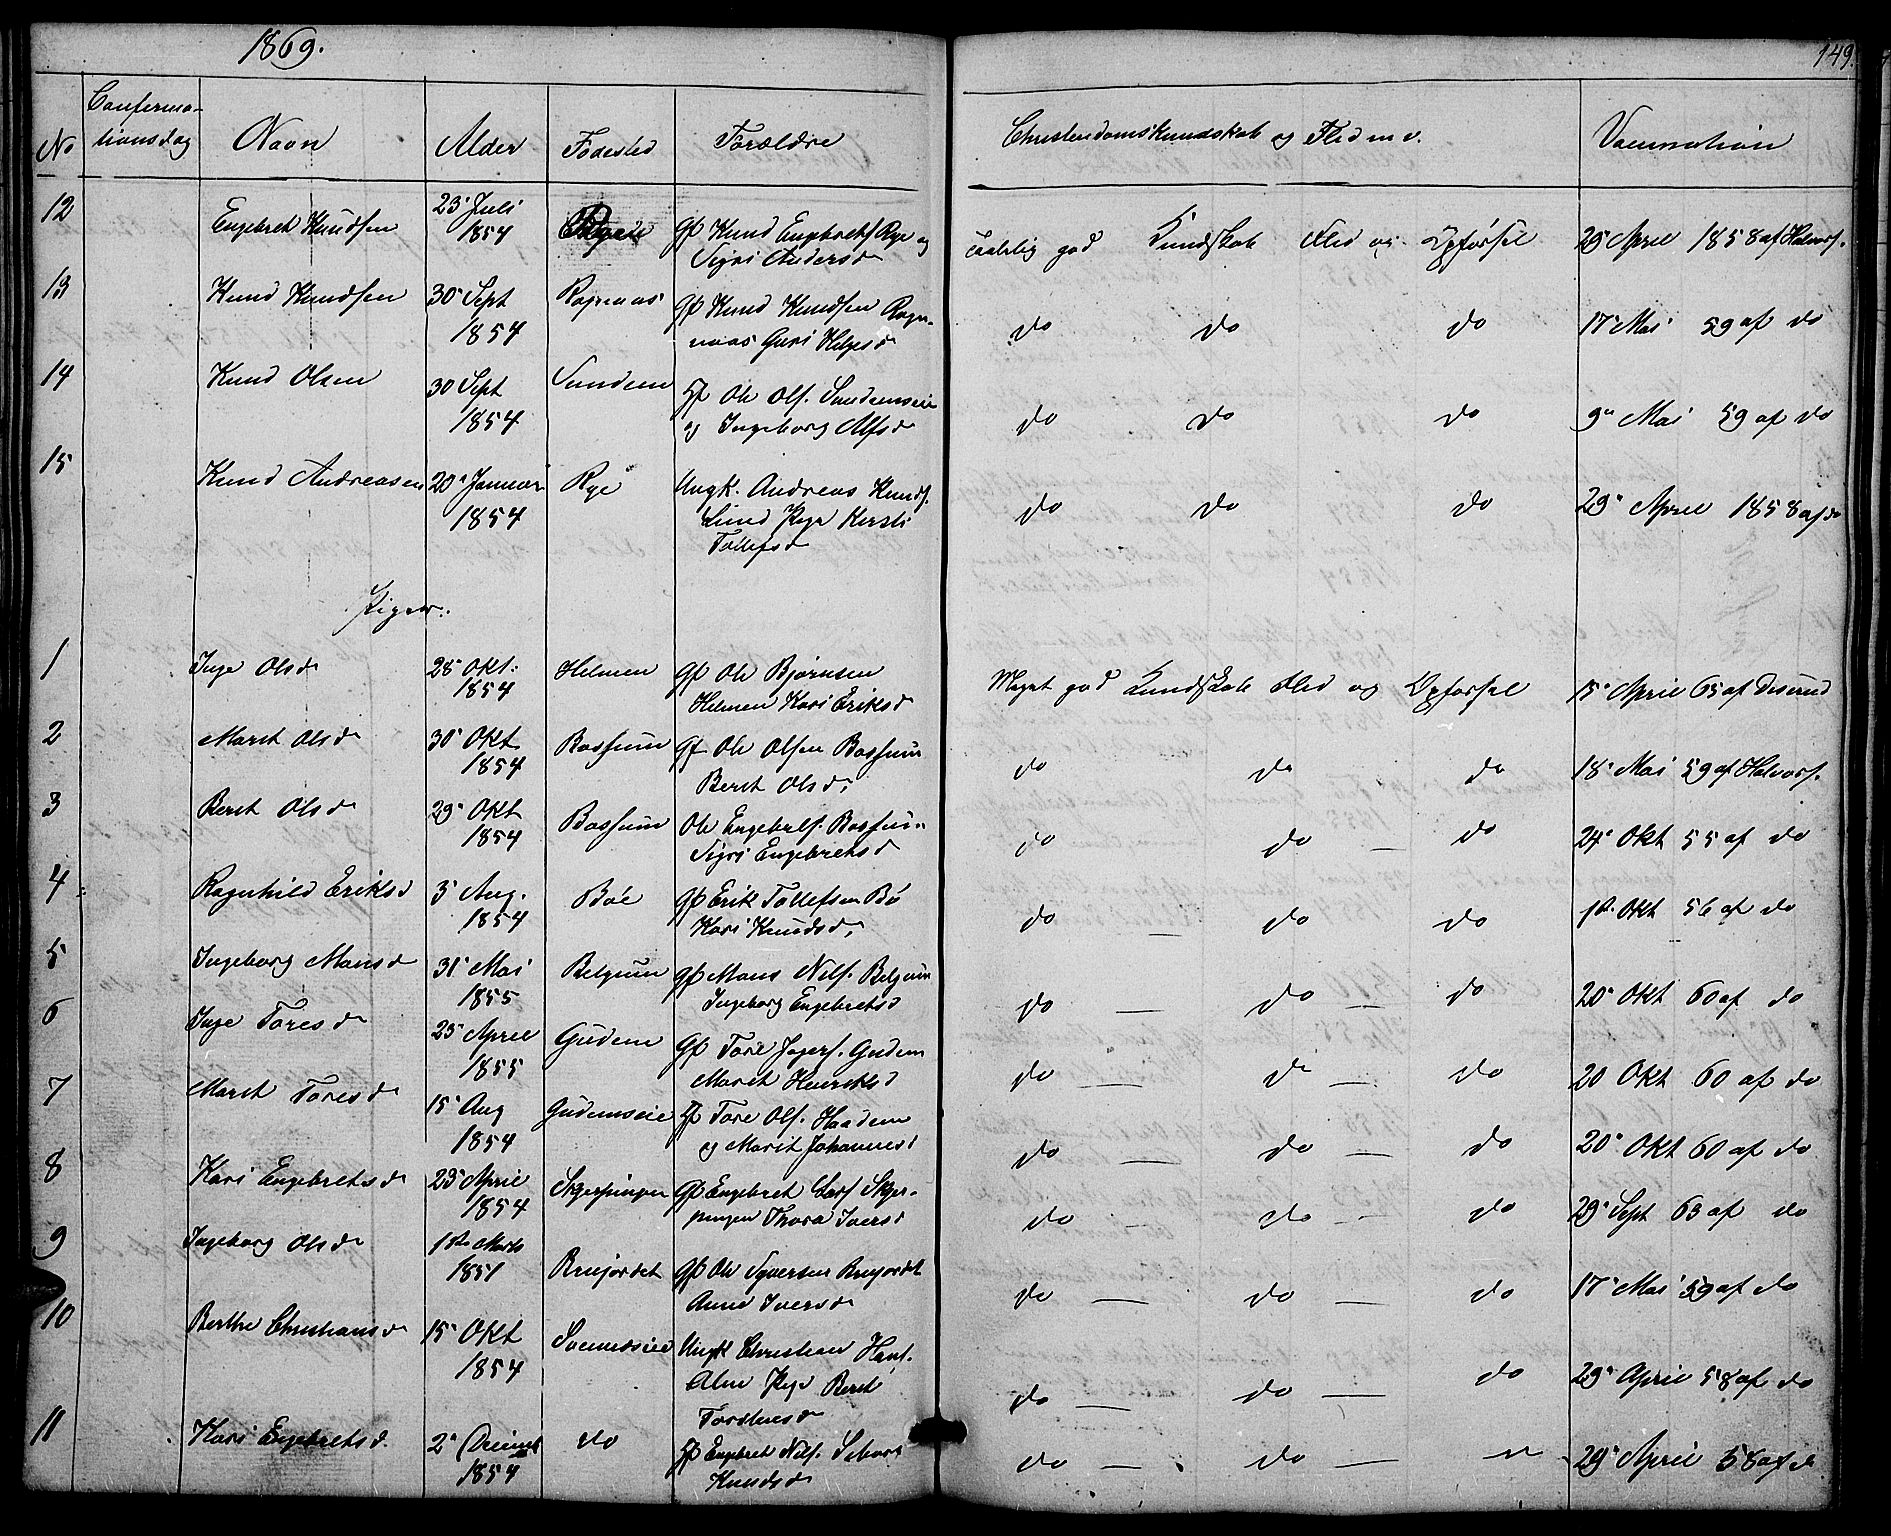 1869.
149.
No Confermationsdag Navn Alder Fødested Forældre Christendomskundskab og Flid m v. Vaccination
12 Engebret Knudsen 23' Juli 1854 Gp Knud Engebrets. Rye og Sigri Andersd taalelig god Kundskab Flid og Opførsel 29' April 1858 af Halvors.
13 Knud Knudsen 30' Sept 1854 Rognaas Gp Knud Knudsen Rognaas Guri Helgesd do do do 17' Mai 59 af do
14 Knud Olsen 30 Sept 1854 Sundem Gp Ole Ols. Sundemseie og Ingeborg Alfsd do do do 9" Mai 59 af do
15 Knud Andreasen 20' Januar 1854 Rye Ungk. Andreas Knuds. Lund Pige Kersti Tollefsd do do do 29" April 1858 af do
Piger.
1 Inge Olsd 28' Okt. 1854 Helmen Gp Ole Bjørnsen Helmen Kari Eriksd Meget god Kundskab Flid og Opførsel 15' April 65 af Diserud
2 Marit Olsd 30' Okt 1854 Bossum Gp Ole Olsen Bossum Beret Olsd. do do do 18' Mai 59 af Halvors.
3 Beret Olsd 29' Okt 1854 Bossum Ole Engebrets. Bossum Sigri Engebretsd do do — do 24' Okt 55 af do
4 Ragnhild Eriksd 3' Aug. 1854 Böe Gp Erik Tollefsen Bö Kari Knudsd. do — do do 1st Okt 56 af do
5 Ingeborg Monsd 31' Mai 1855 Belgum Gp Mons Nils. Belgum Ingeborg Engebretsd do — do — do 20' Okt 60 af do
6 Inge Toresd 25' April 1855 Gudem Gp Tore Gudem Marit Henriksd do — do — do 20 Okt 60 af do
7 Marit Toresd 15' Aug 1854 Gudemseie Gp Tore Ols. Haadem og Marit Johannesd do — do — do 20' Okt 60 af do
8 Kari Engebretsd 23' April 1854 Skjerpingen Gp Engebret Lars. Skjerpingen Thora Iversd do — do — do 29' Sept 63 af do
9 Ingeborg Olsd 1ste Marts 1851 Brujordet Gp Ole Syversen Brujordet Anne Iversd do — do — do 17' Mai 59 af do
10 Berthe Christiansd 15' Okt 1854 Ungk Christian Hans. Pige Beret Tordinesd do — do — do 29' April 58 af do
11 Kari Engebretsd. 2' 1854 do Gp Engebret Nils. Knudsd do — do — 29' April 58 af do